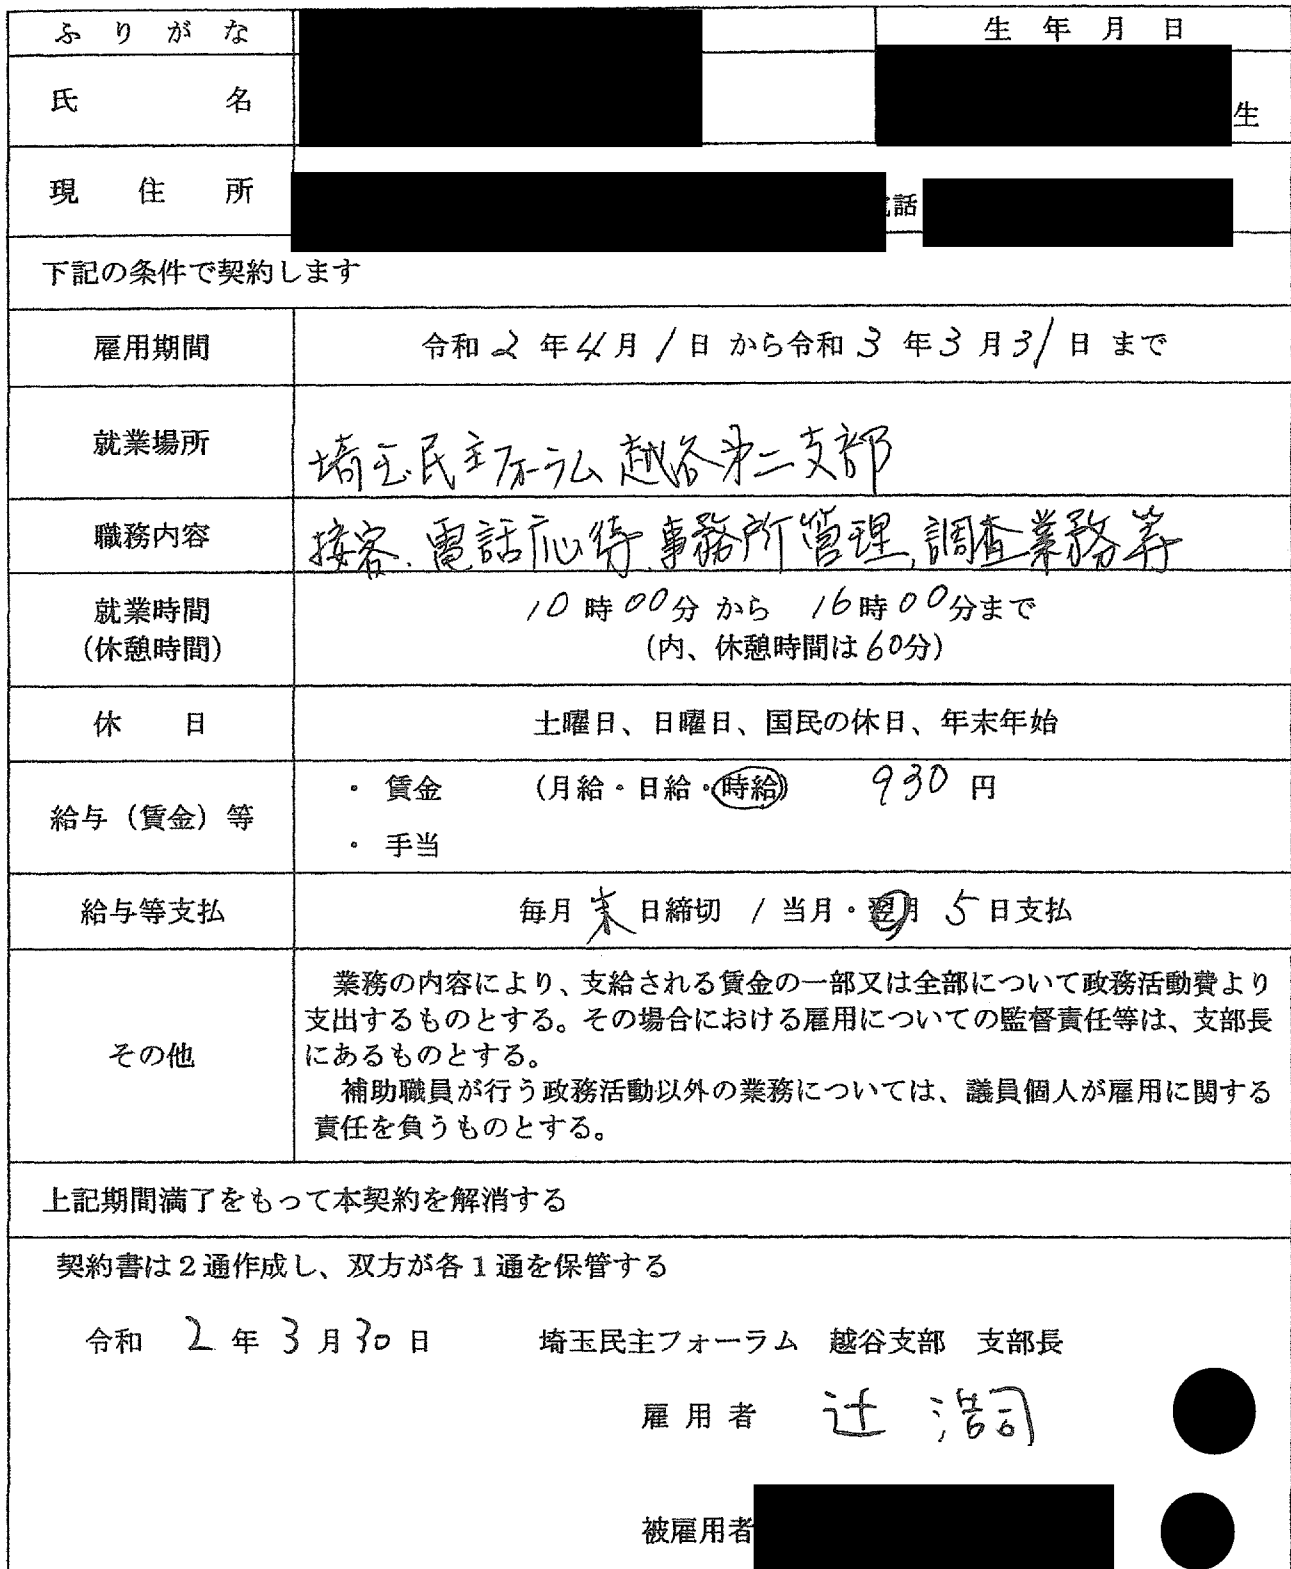 ふりがな
生年月日
氏名
生
現住所
話
下記の条件で契約します
雇用期間
令和2年4月1日から令和3年3月31日まで
就業場所
埼玉民主フォーラム越谷第二支部
職務内容
接客、電話応待、事務所管理、調査業務等
就業時間
(休憩時間)
10時00分から16時00分まで
(内、休憩時間は60分)
休日
土曜日、日曜日、国民の休日、年末年始
給与(賃金)等
・賃金 (月給・日給・時給) 930円
・手当
給与等支払
毎月末日締切 / 当月・翌月 5日支払
その他
業務の内容により、支給される賃金の一部又は全部について政務活動費より
支出するものとする。その場合における雇用についての監督責任等は、支部長
にあるものとする。
補助職員が行う政務活動以外の業務については、議員個人が雇用に関する
責任を負うものとする。
上記期間満了をもって本契約を解消する
契約書は2通作成し、双方が各1通を保管する
令和2年3月30日 埼玉民主フォーラム 越谷支部 支部長
雇用者 辻 浩司
被雇用者